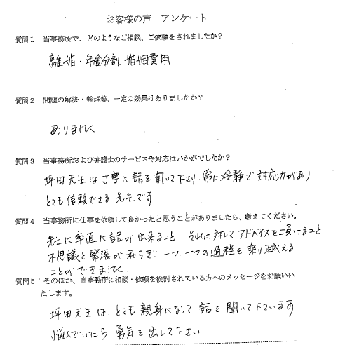 お客様の声 アンケート
質問1 当事務所で、どのようなご相談、ご依頼をされましたか？
離婚・年金分割・婚姻費用
質問2 問題の解決・軽減等、一定の効果はありましたか？
ありました
質問3 当事務所および弁護士のサービスや対応はいかがでしたか？
坪田先生はご親身に話を聞いて下さり、常に冷静で対応力があり
とても信頼できる先生です
質問4 当事務所に仕事を依頼して良かったと思うことがありましたら、お教えください。
先生に率直に話が出来ること それに対してアドバイスをご頂けること
不思議と緊張が和らぎ 一つ一つの過程を乗り越える
ことができました
質問5 その他、当事務所に相談・依頼を検討されている方へのメッセージをお願いい
たします。
坪田先生は とても親身になって 話を聞いて下さいます
悩んでいたら 勇気を出して下さい